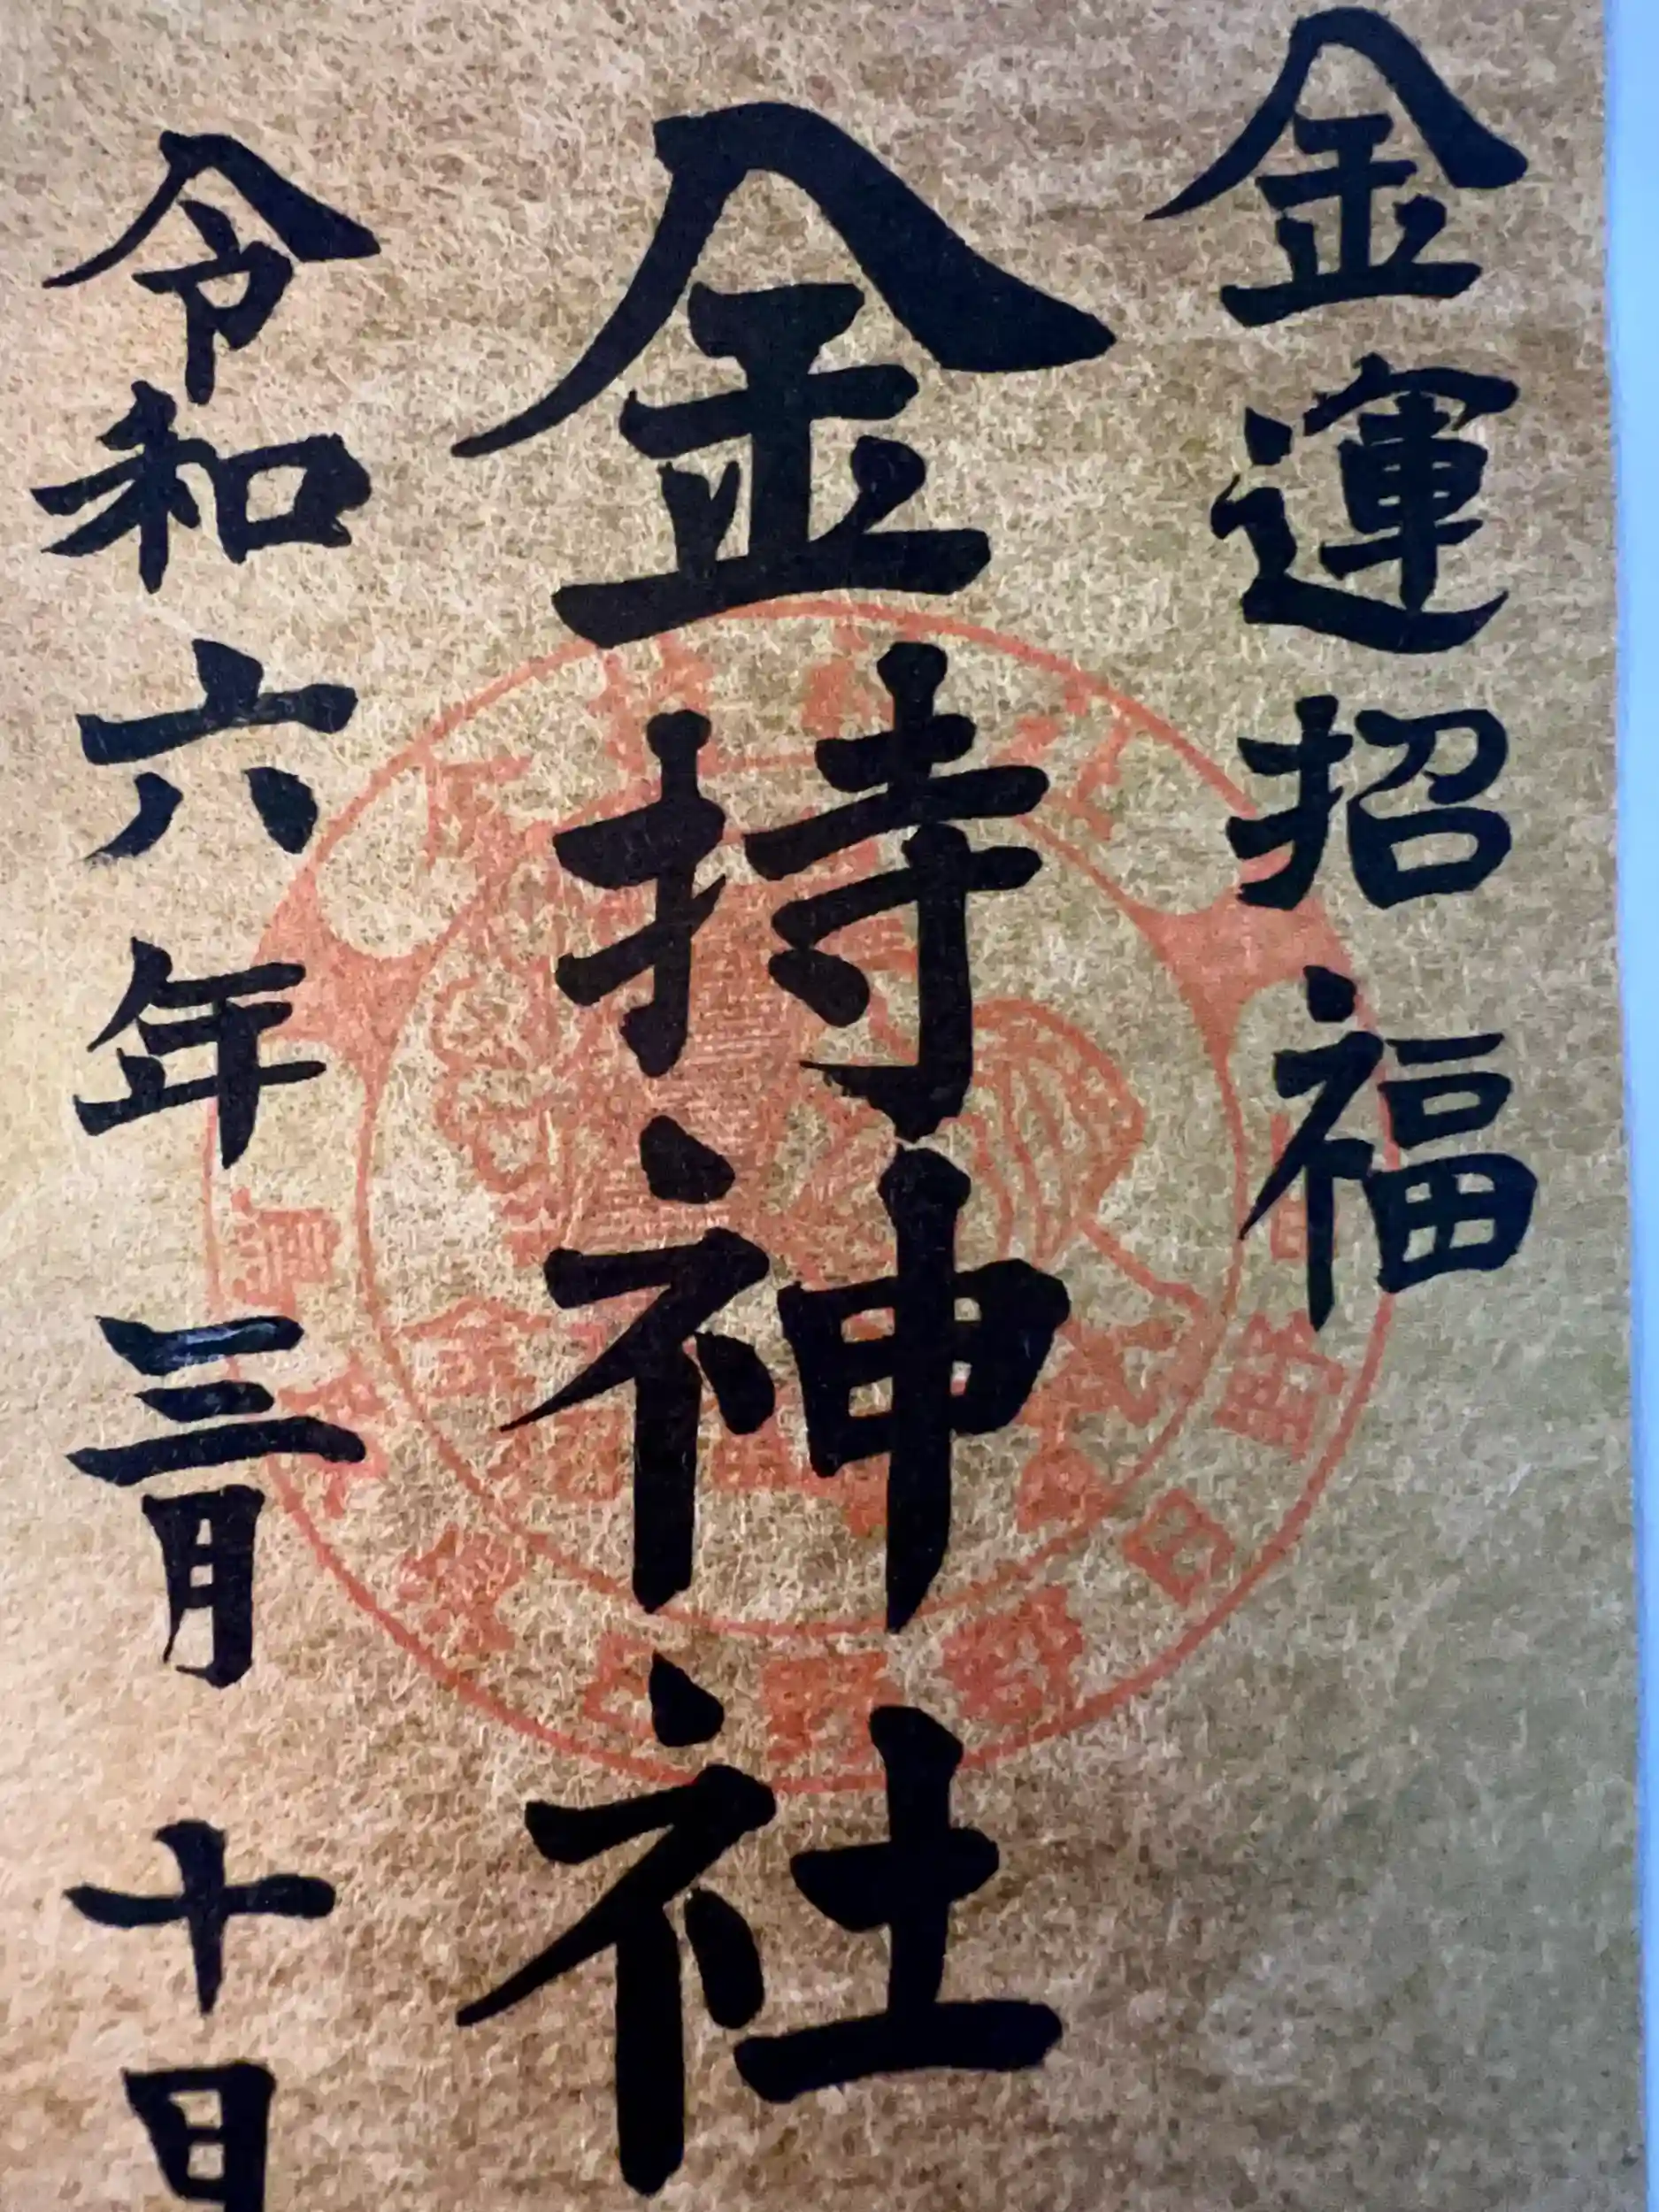 金運招福
金持神社
令和六年三月十日